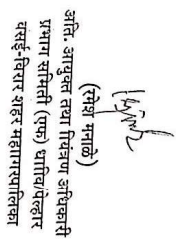 (रमेश मनाळे)
अति. आयुक्त तथा नियंत्रण अधिकारी
प्रभाग समिती (एफ) धानिव/पेल्हार
वसई-विरार शहर महानगरपालिका